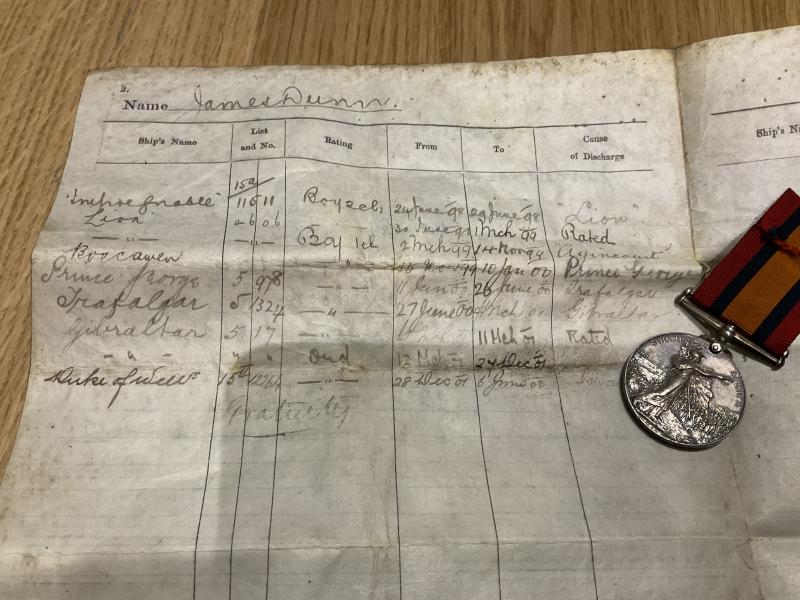 2.
Name James Dunn.
Ship's Name List and No. Rating From To Cause of Discharge
Ship's N
15a
"Impregnable" 11511 Boy 2cl. 24 June 98 29 June 98 "Lion"
Lion 4606 30 June 98 1 Mch 99 Rated
—"— —"— Boy 1cl 2 Mch 99 14 Nov 99 Agincourt
Boscawen " 15 Nov 99 10 Jan 00 Prince George
Prince George 5 978 —"— 11 Jan 00 26 June 00 Trafalgar
Trafalgar 5 1324 —"— 27 June 00 Mch 01 Gibraltar
Gibraltar 5 17 —"— 11 Mch 01 Rated
—"— " " Ord 12 Mch 01 27 Dec 01
Duke of Well 15a —"— 28 Dec 01 6 June 02
Gratuity